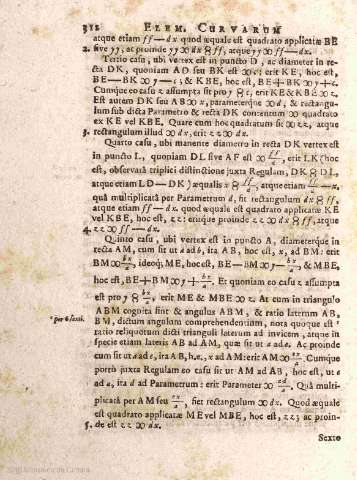 312 ELEM. CURVARUM
atque etiam ff — dx quod æquale est quadrato applicatæ BE
2. sive yy, ac proinde yy ∞ dx 8 ff, atque yy ∞ ff — dx.
Tertio casu, ubi vertex est in puncto D, ac diameter in re-
cta DK, quoniam AD seu BK est ∞ c: erit KE, hoc est,
BE — BK ∞ y — c; & KBE, hoc est, BE + BK ∞ y + c.
Cumque eo casu z assumpta sit pro y 8 c, erit KE & KBE ∞ z.
Est autem DK seu AB ∞ x, parameterque ∞ d, & rectangu-
lum sub dicta Parametro & recta DK contentum ∞ quadrato
ex KE vel KBE. Quare cum hoc quadratum sit ∞ zz, atque
3. rectangulum illud ∞ dx, erit zz ∞ dx.
Quarto casu, ubi manente diametro in recta DK vertex est
in puncto L, quoniam DL sive AF est ∞ ff/d, erit LK (hoc
est, observatâ triplici distinctione juxta Regulam, DK 8 DL,
atque etiam LD — DK) æqualis x 8 ff/d, atque etiam ff/d — x,
quâ multiplicatâ per Parametrum d, fit rectangulum dx 8 ff,
atque etiam ff — dx. quod æquale est quadrato applicatæ KE
vel KBE, hoc est, zz: eritque proinde zz ∞ dx 8 ff, atque
4. zz ∞ ff — dx.
Quinto casu, ubi vertex est in puncto A, diameterque in
recta AM, cum sit ut a ad b, ita AB, hoc est, x, ad BM: erit
BM ∞ bx/a, ideoq; ME, hoc est, BE — BM ∞ y — bx/a, & MBE,
hoc est, BE + BM ∞ y + bx/a. Et quoniam eo casu z assumpta
est pro y 8 bx/a, erit ME & MBE ∞ z. At cum in triangulo
ABM cognita sint & angulus ABM, & ratio laterum AB,
* per 6 sexti. BM, dictum angulum comprehendentium, nota quoque est *
ratio reliquorum dicti trianguli laterum ad invicem, atque in
specie etiam lateris AB ad AM, quæ sit ut a ad e. Ac proinde
cum sit ut a ad e, ita AB, h.e., x ad AM: erit AM ∞ ex/a. Cumque
porrò juxta Regulam eo casu sit ut AM ad AB, hoc est, ut e
ad a, ita d ad Parametrum: erit Parameter ∞ ad/e. Quâ multi-
plicatâ per AM seu ex/a, fiet rectangulum ∞ dx. Quod æquale
est quadrato applicatæ ME vel MBE, hoc est, zz; ac proin-
5. de est zz ∞ dx.
Sexto